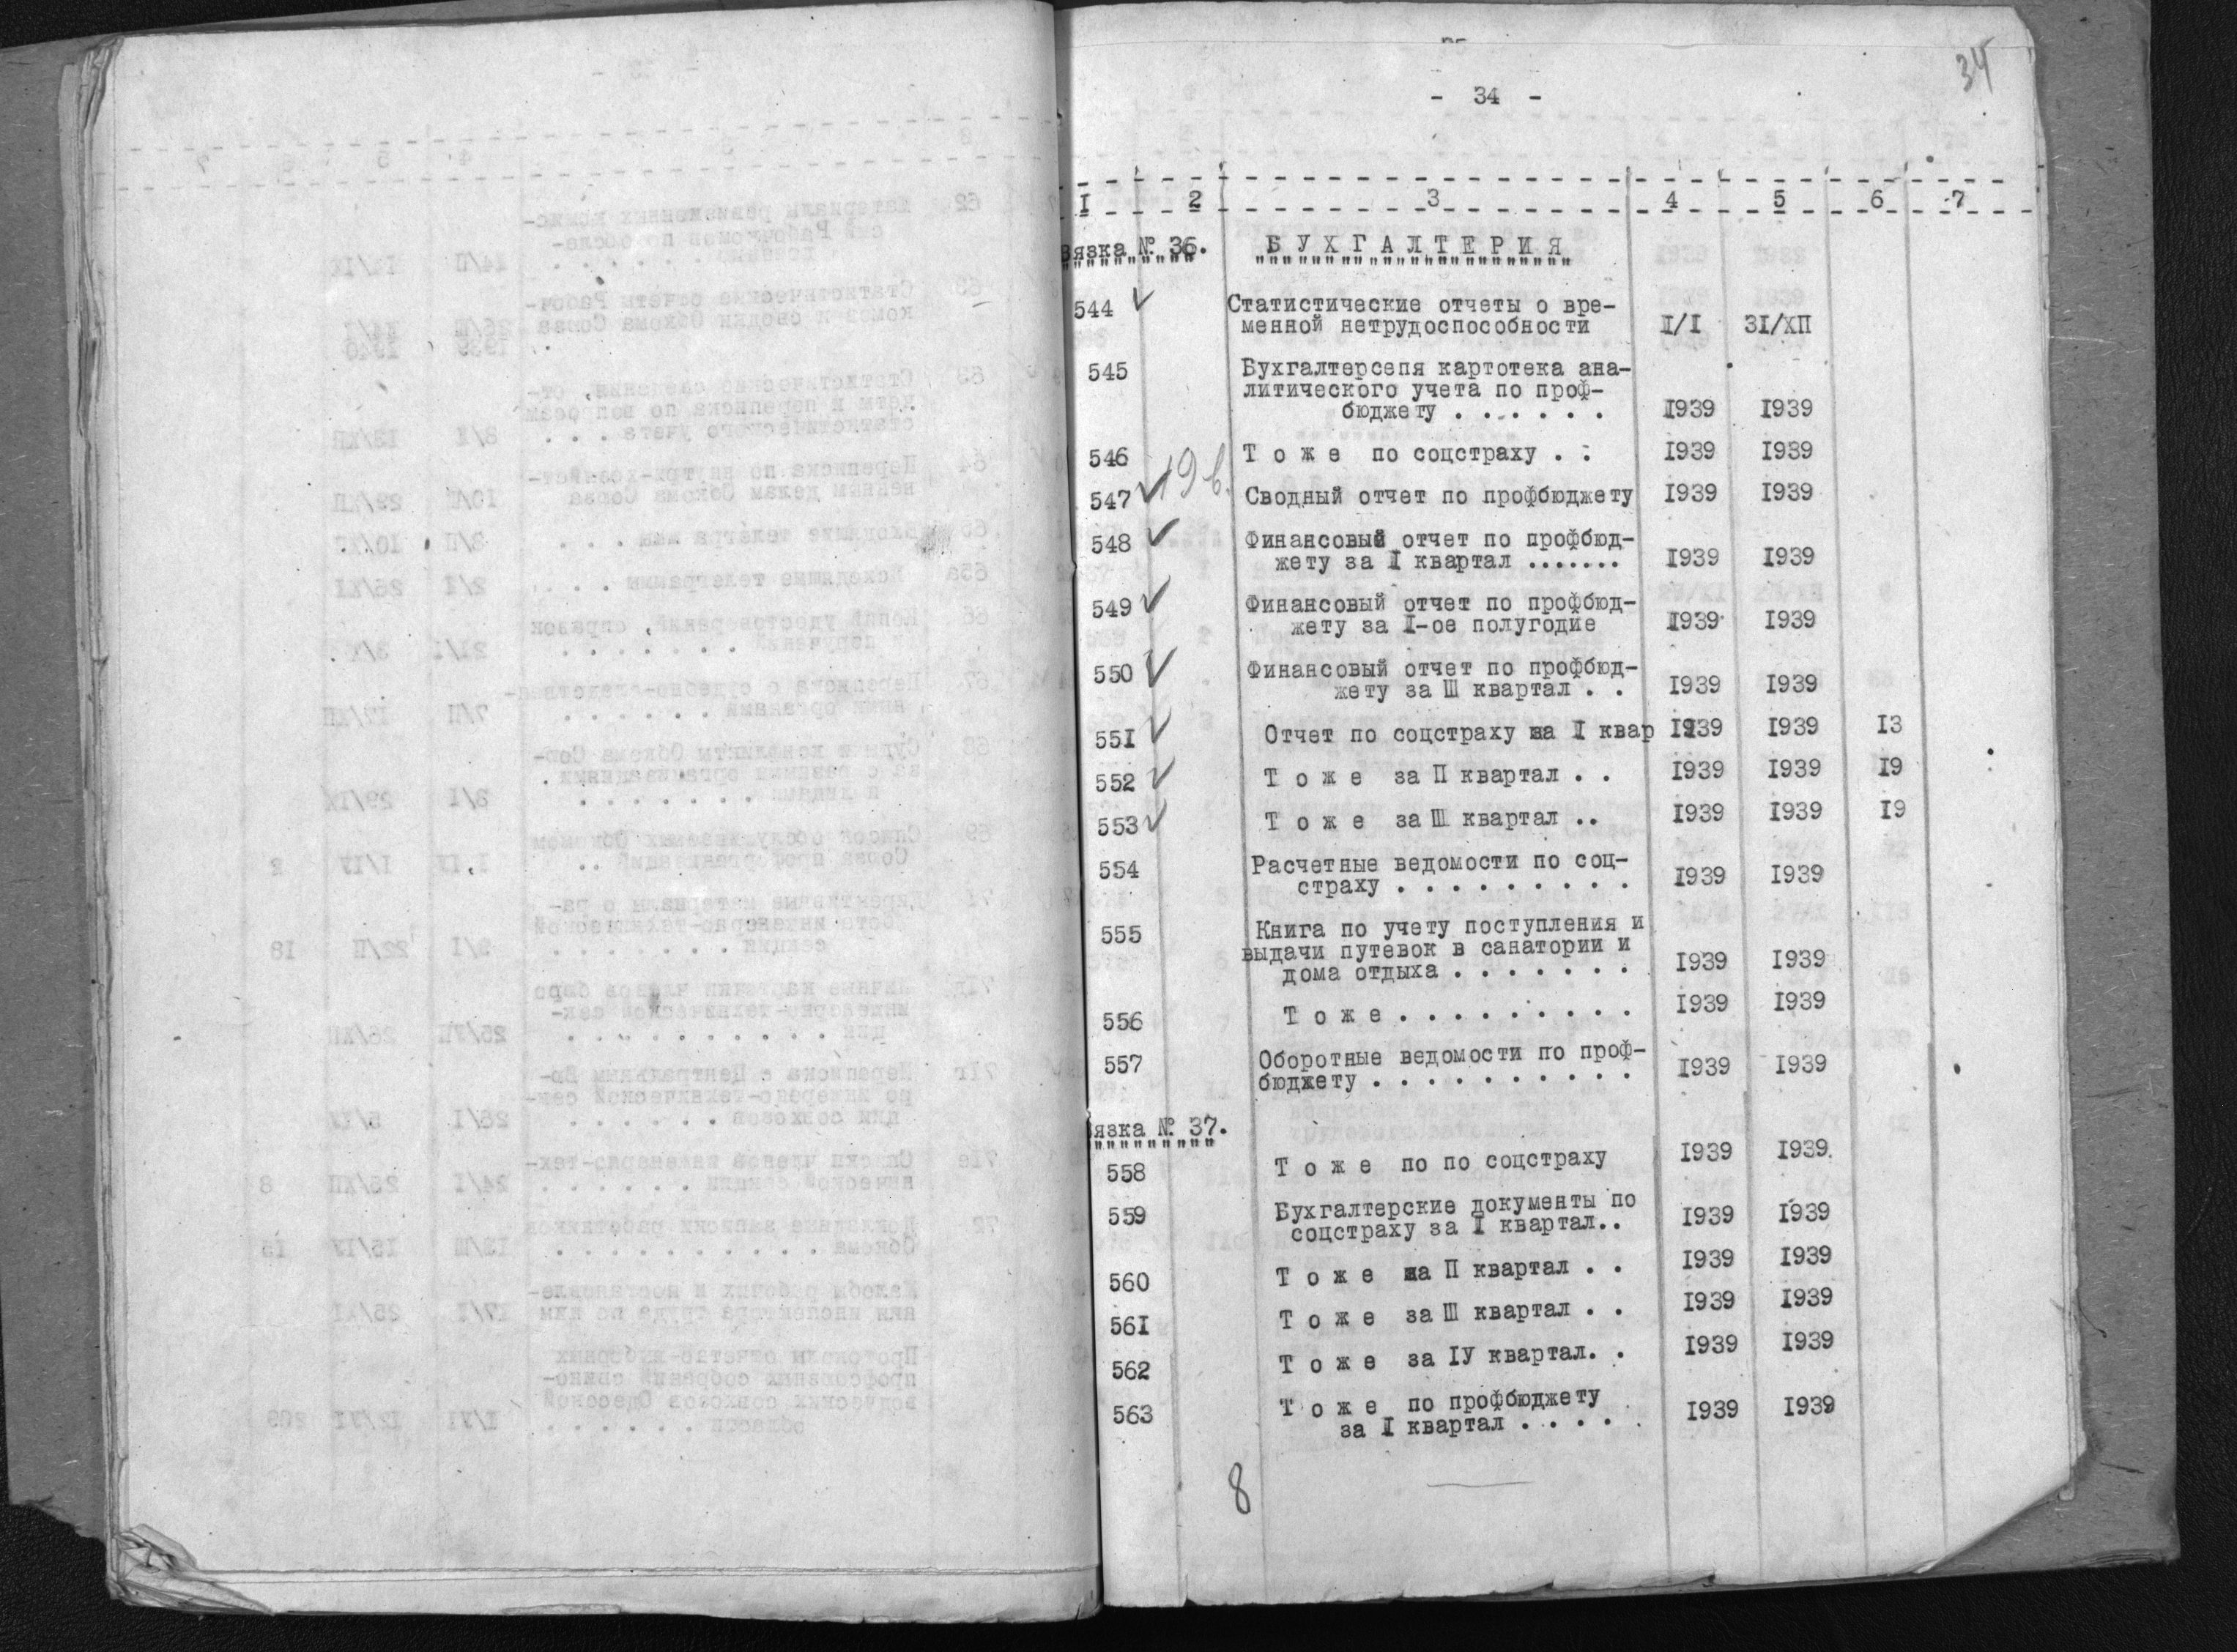 34
- 34 -
I 2 3 4 5 6 7
Вязка № 36. БУХГАЛТЕРИЯ
544 ✓ Статистические отчеты о вре-
менной нетрудоспособности I/I 3I/ХП
545 Бухгалтерсепя картотека ана-
литического учета по проф-
бюджету . . . . . . I939 I939
546 Т о ж е по соцстраху . . I939 I939
19 в.
547 ✓ Сводный отчет по профбюджету I939 I939
548 ✓ Финансовый отчет по профбюд-
жету за I квартал ....... I939 I939
549 ✓ Финансовый отчет по профбюд-
жету за I-ое полугодие I939 I939
550 ✓ Финансовый отчет по профбюд-
жету за Ш квартал . . I939 I939
551 ✓ Отчет по соцстраху за I квар I939 I939 I3
552 ✓ Т о ж е за П квартал . . I939 I939 I9
553 ✓ Т о ж е за Ш квартал .. I939 I939 I9
554 Расчетные ведомости по соц-
страху . . . . . . . . . I939 I939
555 Книга по учету поступления и
выдачи путевок в санатории и
дома отдыха . . . . . . . I939 I939
556 Т о ж е . . . . . . . . . I939 I939
557 Оборотные ведомости по проф-
бюджету . . . . . . . . . . . I939 I939
вязка № 37.
558 Т о ж е по по соцстраху I939 I939.
559 Бухгалтерские документы по
соцстраху за I квартал.. I939 I939
560 Т о ж е за П квартал . . I939 I939
56I Т о ж е за Ш квартал . . I939 I939
562 Т о ж е за IУ квартал. . I939 I939
563 Т о ж е по профбюджету
за I квартал . . . . I939 I939
8